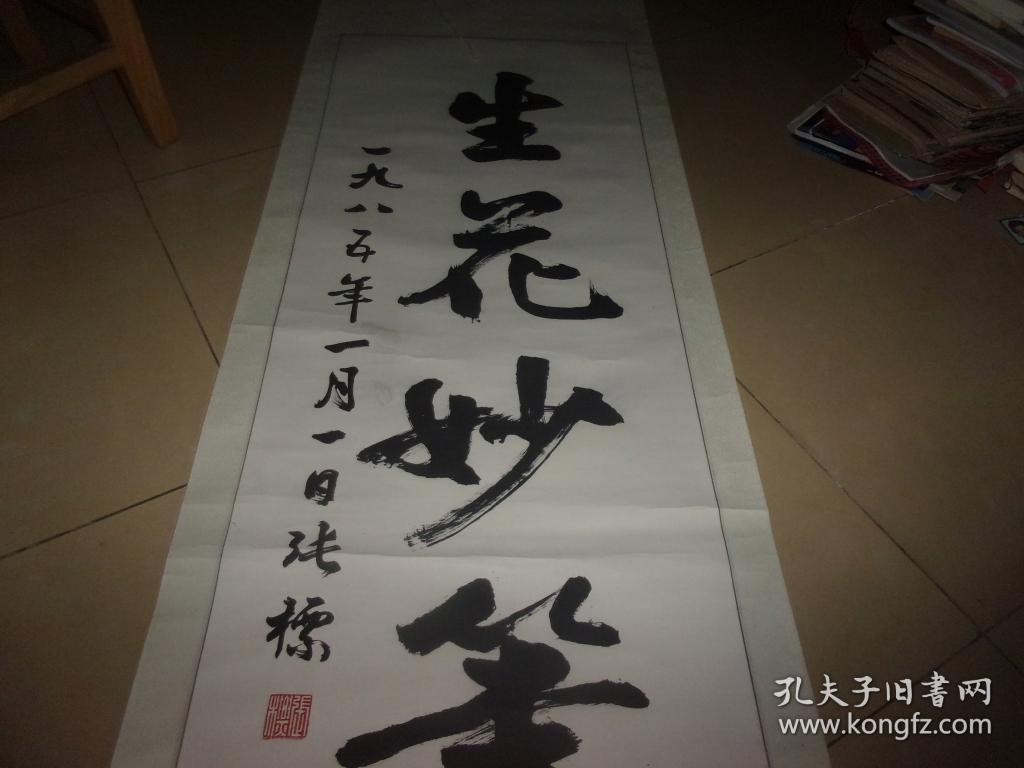 生花妙笔
一九八五年一月一日张标
张标
孔夫子旧書网
www.kongfz.com